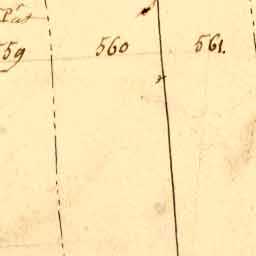 559 560 561.